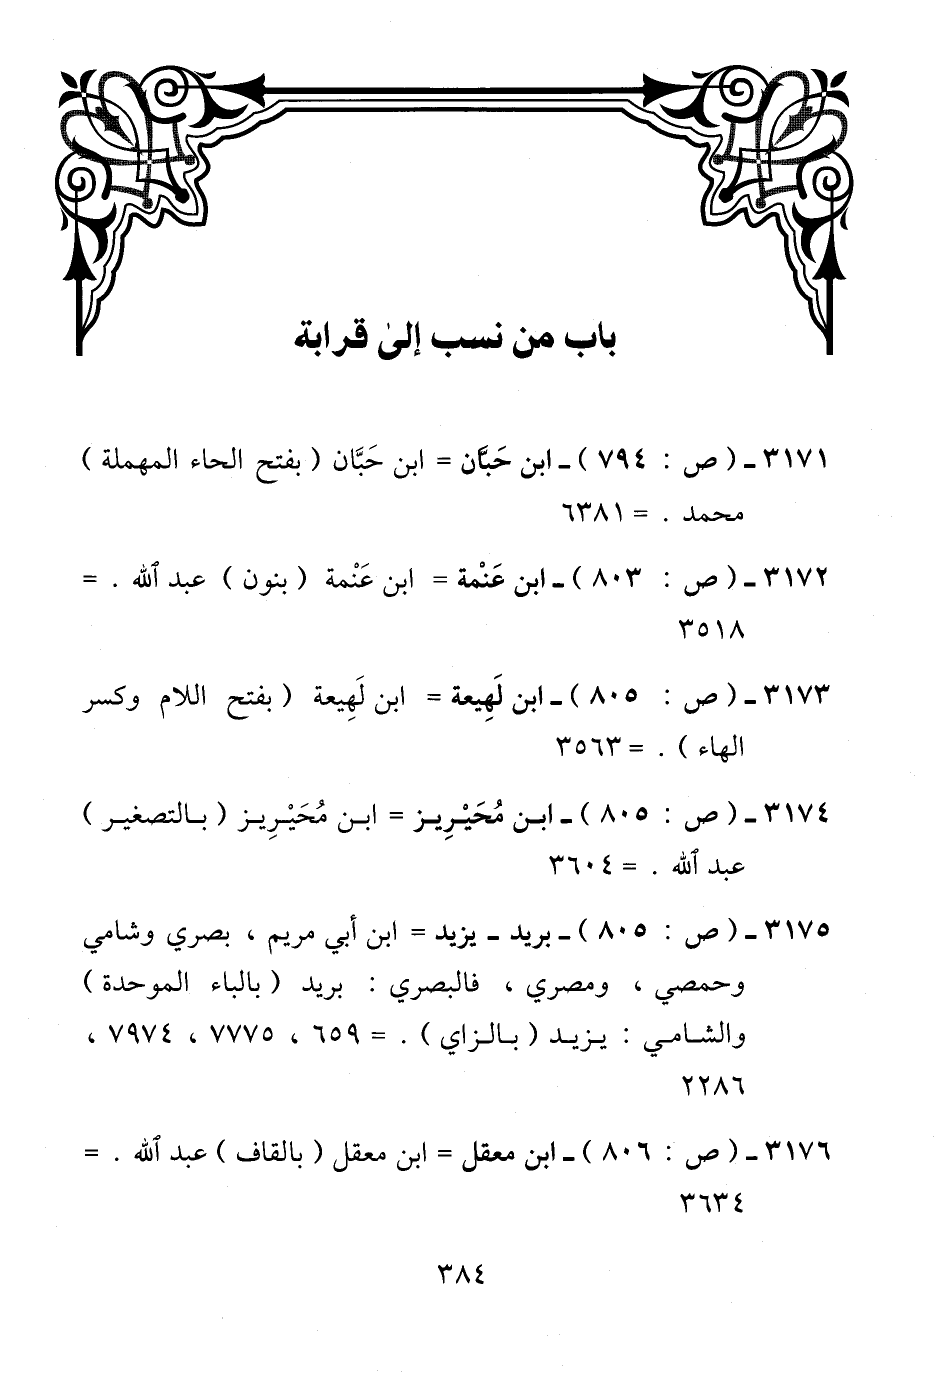 باب من نسب إلىٰ قرابة
٣١٧١ ـ ( ص : ٧٩٤ ) ـ ابن حَبَّان = ابن حَبَّان ( بفتح الحاء المهملة )
محمد . = ٦٣٨١
٣١٧٢ ـ ( ص : ٨٠٣ ) ـ ابن عَنْمة = ابن عَنْمة ( بنون ) عبد ٱلله . =
٣٥١٨
٣١٧٣ ـ ( ص : ٨٠٥ ) ـ ابن لَهِيعة = ابن لَهِيعة ( بفتح اللام وكسر
الهاء ) . = ٣٥٦٣
٣١٧٤ ـ ( ص : ٨٠٥ ) ـ ابـن مُحَيْرِيـز = ابـن مُحَيْرِيـز ( بـالتصغيـر )
عبد ٱلله . = ٣٦٠٤
٣١٧٥ ـ ( ص : ٨٠٥ ) ـ بريد ـ يزيد = ابن أبي مريم ، بصري وشامي
وحمصي ، ومصري ، فالبصري : بريد ( بالباء الموحدة )
والشـامـي : يـزيـد ( بـالـزاي ) . = ٦٥٩ ، ٧٧٧٥ ، ٧٩٧٤ ،
٢٢٨٦
٣١٧٦ ـ ( ص : ٨٠٦ ) ـ ابن معقل = ابن معقل ( بالقاف ) عبد ٱلله . =
٣٦٣٤
٣٨٤